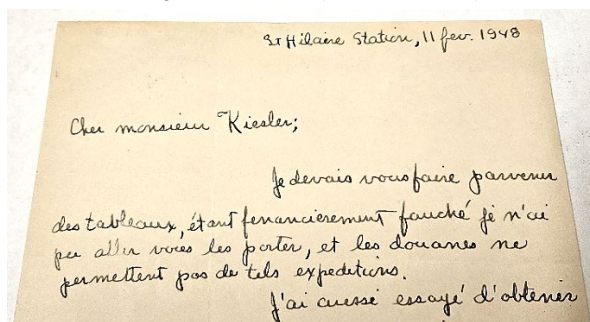 St Hilaire Station, 11 fev. 1948
Cher monsieur Kiesler;
Je devais vous faire parvenir
des tableaux, étant financierement fauché je n'ai
pu aller vous les porter, et les douanes ne
permettent pas de tels expeditions.
J'ai aussi essayé d'obtenir